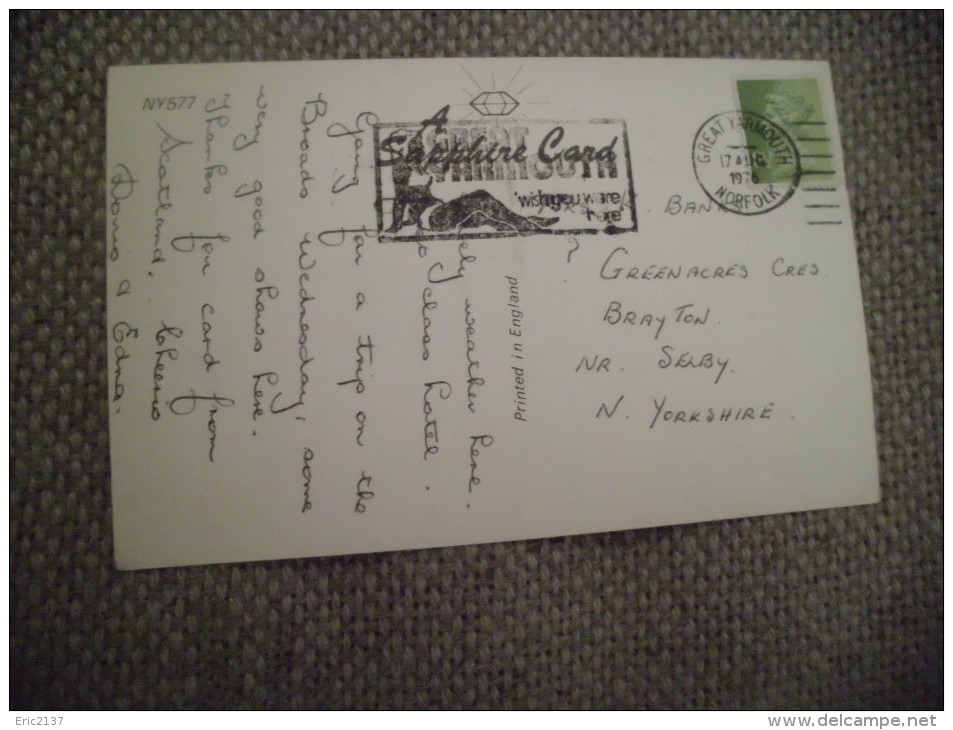 NY577
A
Sapphire Card
GREAT
YARMOUTH
'wish you were
here'
GREAT YARMOUTH
17 AUG
1976
NORFOLK
ely weather here.
class hotel.
Going for a trip on the
Broads Wednesday, some
very good shows here.
Thanks for card from
Scotland. Cheerio
Doris & Edna.
Printed in England
BANK
GREENACRES CRES.
BRAYTON.
NR. SELBY.
N. YORKSHIRE.
Eric2137
www.delcampe.net